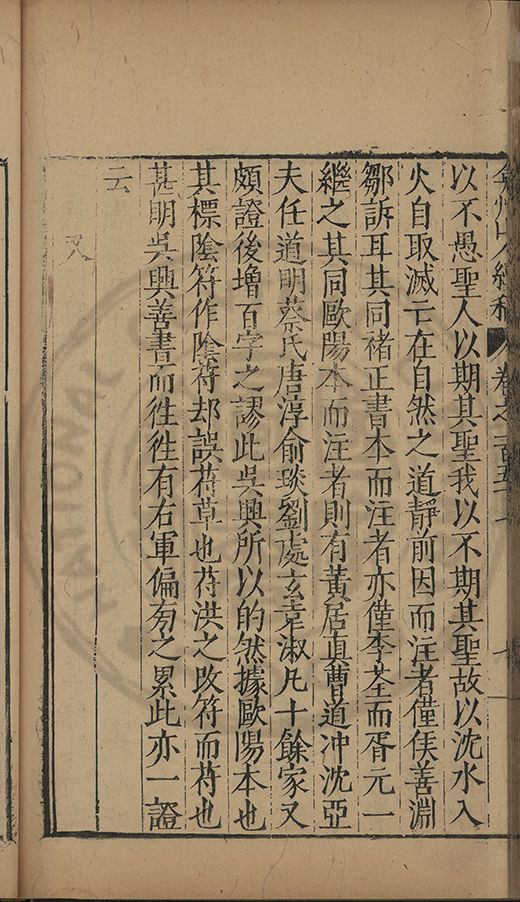 弇州山人續稿 卷之一百五十七 七
以不愚聖人以期其聖我以不期其聖故以沈水入
火自取滅亡在自然之道靜前因而注者僅侯善淵
鄒訢耳其同褚正書本而注者亦僅李荃而胥元一
繼之其同歐陽本而注者則有黃居真曹道冲沈亞
夫任道明蔡氏唐淳俞琰劉處玄韋淑凡十餘家又
頗證後增百字之謬此吳興所以的然據歐陽本也
其標陰符作陰苻却誤苻草也苻洪之改符而苻也
甚明吳興善書而徃徃有右軍偏㫄之累此亦一證
云
又